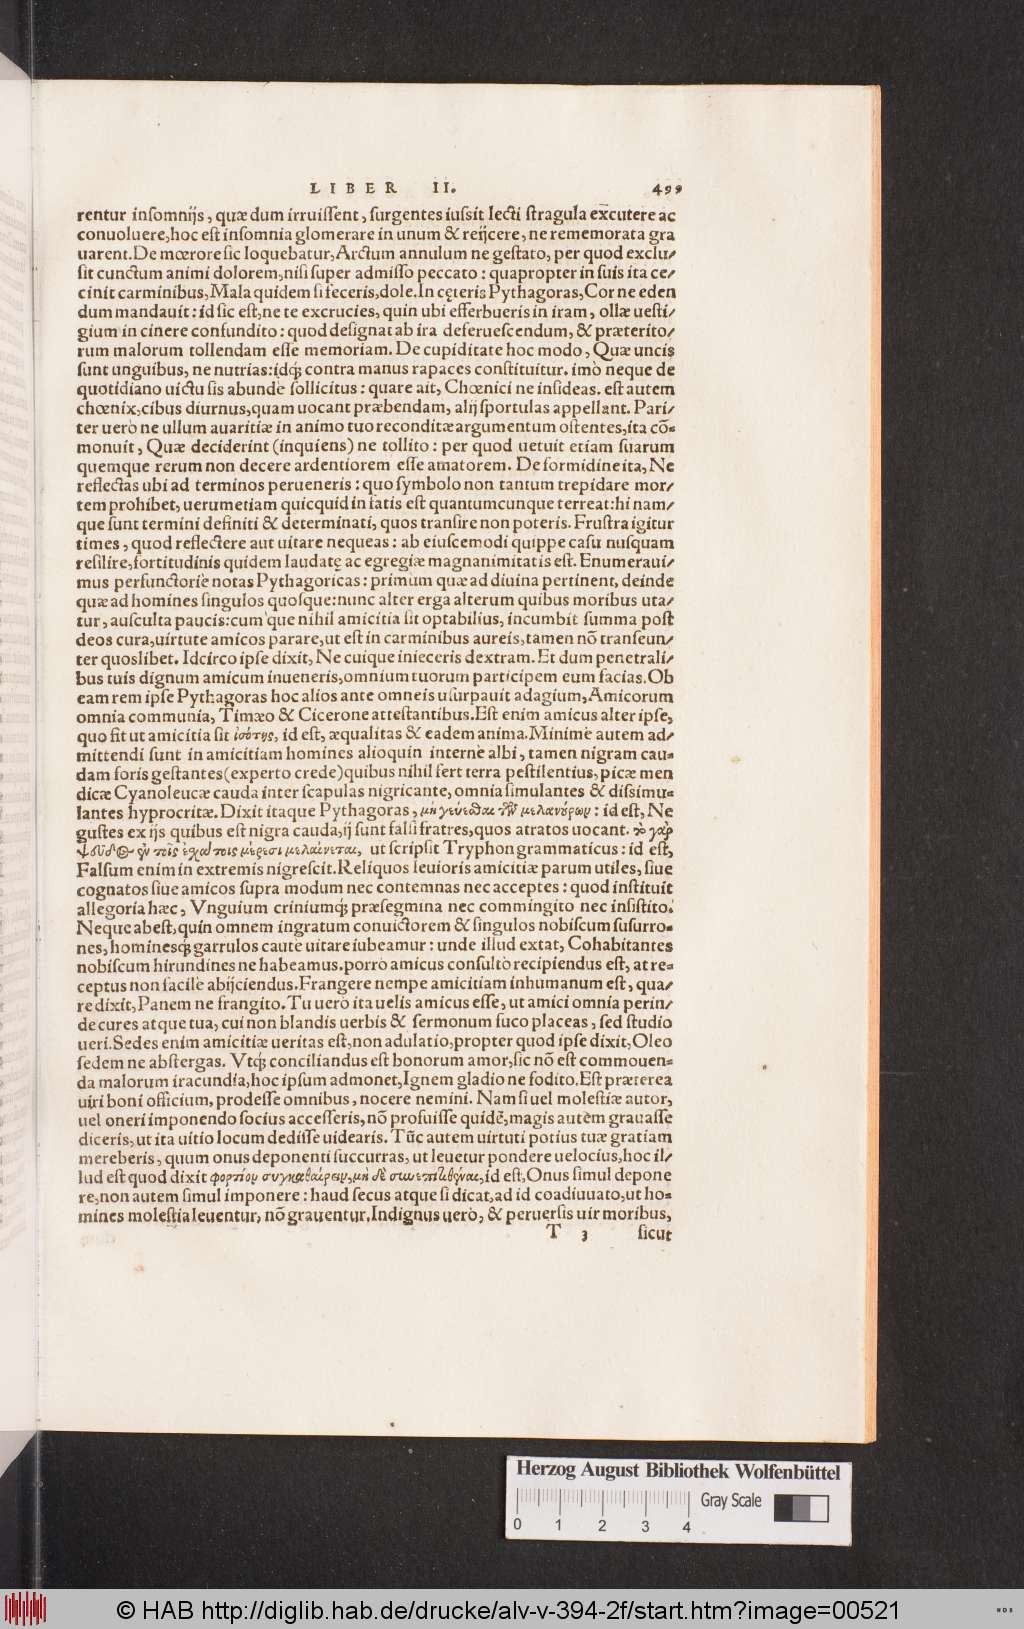 LIBER II. 499
rentur insomnijs, quæ dum irruissent, surgentes iussit lecti stragula excutere ac
conuoluere, hoc est insomnia glomerare in unum & reijcere, ne rememorata gra
uarent. De mœrore sic loquebatur, Arctum annulum ne gestato, per quod exclu/
sit cunctum animi dolorem, nisi super admisso peccato: quapropter in suis ita ce/
cinit carminibus, Mala quidem si feceris, dole. In cęteris Pythagoras, Cor ne eden
dum mandauit: id sic est, ne te excrucies, quin ubi efferbueris in iram, ollæ uesti/
gium in cinere confundito: quod designat ab ira deferuescendum, & præterito/
rum malorum tollendam esse memoriam. De cupiditate hoc modo, Quæ uncis
sunt unguibus, ne nutrias: idq; contra manus rapaces constituitur. imò neque de
quotidiano uictu sis abunde sollicitus: quare ait, Chœnici ne insideas. est autem
chœnix, cibus diurnus, quam uocant præbendam, alij sportulas appellant. Pari/
ter uerò ne ullum auaritiæ in animo tuo reconditæ argumentum ostentes, ita cõ=
monuit, Quæ deciderint (inquiens) ne tollito: per quod uetuit etiam suarum
quemque rerum non decere ardentiorem esse amatorem. De formidine ita, Ne
reflectas ubi ad terminos perueneris: quo symbolo non tantum trepidare mor/
tem prohibet, uerumetiam quicquid in fatis est quantumcunque terreat: hi nam/
que sunt termini definiti & determinati, quos transire non poteris. Frustra igitur
times, quod reflectere aut uitare nequeas: ab eiuscemodi quippe casu nusquam
resilire, fortitudinis quidem laudatę ac egregiæ magnanimitatis est. Enumeraui/
mus perfunctoriè notas Pythagoricas: primùm quæ ad diuina pertinent, deinde
quæ ad homines singulos quosque: nunc alter erga alterum quibus moribus uta/
tur, ausculta paucis: cum'que nihil amicitia sit optabilius, incumbit summa post
deos cura, uirtute amicos parare, ut est in carminibus aureis, tamen nõ transeun/
ter quoslibet. Idcirco ipse dixit, Ne cuique inieceris dextram. Et dum penetrali/
bus tuis dignum amicum inueneris, omnium tuorum participem eum facias. Ob
eam rem ipse Pythagoras hoc alios ante omneis usurpauit adagium, Amicorum
omnia communia, Timæo & Cicerone attestantibus. Est enim amicus alter ipse,
quo fit ut amicitia sit ἰσότης, id est, æqualitas & eadem anima. Minimè autem ad/
mittendi sunt in amicitiam homines alioquin internè albi, tamen nigram cau=
dam foris gestantes (experto crede) quibus nihil fert terra pestilentius, picæ men
dicæ Cyanoleucæ cauda inter scapulas nigricante, omnia simulantes & dissimu=
lantes hyprocritæ. Dixit itaque Pythagoras, μὴ γεύεσθαι τῶν μελανούρων: id est, Ne
gustes ex ijs quibus est nigra cauda, ij sunt falsi fratres, quos atratos uocant. τὸ γὰρ
ψεῦδος ἐν τοῖς ἐχάτοις μέρεσι μελαίνεται, ut scripsit Tryphon grammaticus: id est,
Falsum enim in extremis nigrescit. Reliquos leuioris amicitiæ parum utiles, siue
cognatos siue amicos supra modum nec contemnas nec acceptes: quod instituit
allegoria hæc, Vnguium criniumq; præsegmina nec commingito nec insistito.
Neque abest, quin omnem ingratum conuictorem & singulos nobiscum susurro=
nes, hominesq; garrulos cautè uitare iubeamur: unde illud extat, Cohabitantes
nobiscum hirundines ne habeamus. porrò amicus consultò recipiendus est, at re=
ceptus non facilè abijciendus. Frangere nempe amicitiam inhumanum est, qua/
re dixit, Panem ne frangito. Tu uerò ita uelis amicus esse, ut amici omnia perin/
de cures atque tua, cui non blandis uerbis & sermonum fuco placeas, sed studio
ueri. Sedes enim amicitiæ ueritas est, non adulatio, propter quod ipse dixit, Oleo
sedem ne abstergas. Vtq; conciliandus est bonorum amor, sic nõ est commouen=
da malorum iracundia, hoc ipsum admonet, Ignem gladio ne fodito. Est præterea
uiri boni officium, prodesse omnibus, nocere nemini. Nam si uel molestiæ autor,
uel oneri imponendo socius accesseris, nõ profuisse quidẽ, magis autem grauasse
diceris, ut ita uitio locum dedisse uidearis. Tũc autem uirtuti potius tuæ gratiam
mereberis, quum onus deponenti succurras, ut leuetur pondere uelocius, hoc il/
lud est quod dixit φορτίον συγκαθαίρειν, μὴ δὲ συνεπιτιθέναι, id est, Onus simul depone
re, non autem simul imponere: haud secus atque si dicat, ad id coadiuuato, ut ho=
mines molestia leuentur, nõ grauentur. Indignus uerò, & peruersis uir moribus,
T 3 sicut
Herzog August Bibliothek Wolfenbüttel
Gray Scale
0 1 2 3 4
© HAB http://diglib.hab.de/drucke/alv-v-394-2f/start.htm?image=00521